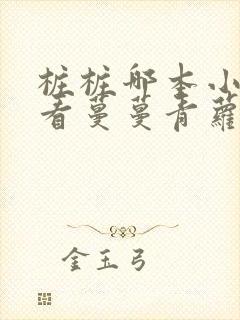 桩桩那本小
看蔓蔓青蘿
金玉弓